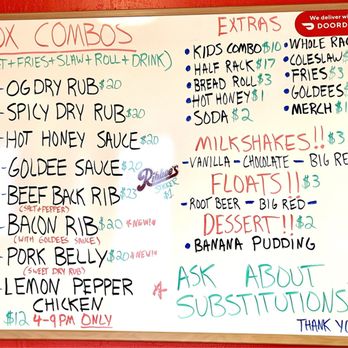 OX COMBOS
T+FRIES+SLAW+ROLL+DRINK)
- OG DRY RUB $20
- SPICY DRY RUB $20
- HOT HONEY SAUCE $20
- GOLDEE SAUCE $20
- BEEF BACK RIB $23
(SALT+PEPPER)
- BACON RIB $20 *NEW!*
(WITH GOLDEES SAUCE)
- PORK BELLY $20 *NEW!*
(SWEET DRY RUB)
- LEMON PEPPER
CHICKEN
$12 4-9PM ONLY
Ribbee's
EXTRAS
• KIDS COMBO $10
• HALF RACK $17
• BREAD ROLL $3
• HOT HONEY $1
• SODA $2
• WHOLE RAC
• COLESLAW $
• FRIES $3
• GOLDEES
• MERCH $1
MILKSHAKES!! $3
- VANILLA - CHOCOLATE - BIG RE
FLOATS!! $3
- ROOT BEER - BIG RED -
DESSERT!! $2
• BANANA PUDDING
ASK ABOUT
SUBSTITUTIONS
THANK YO
We deliver wi
DOORD